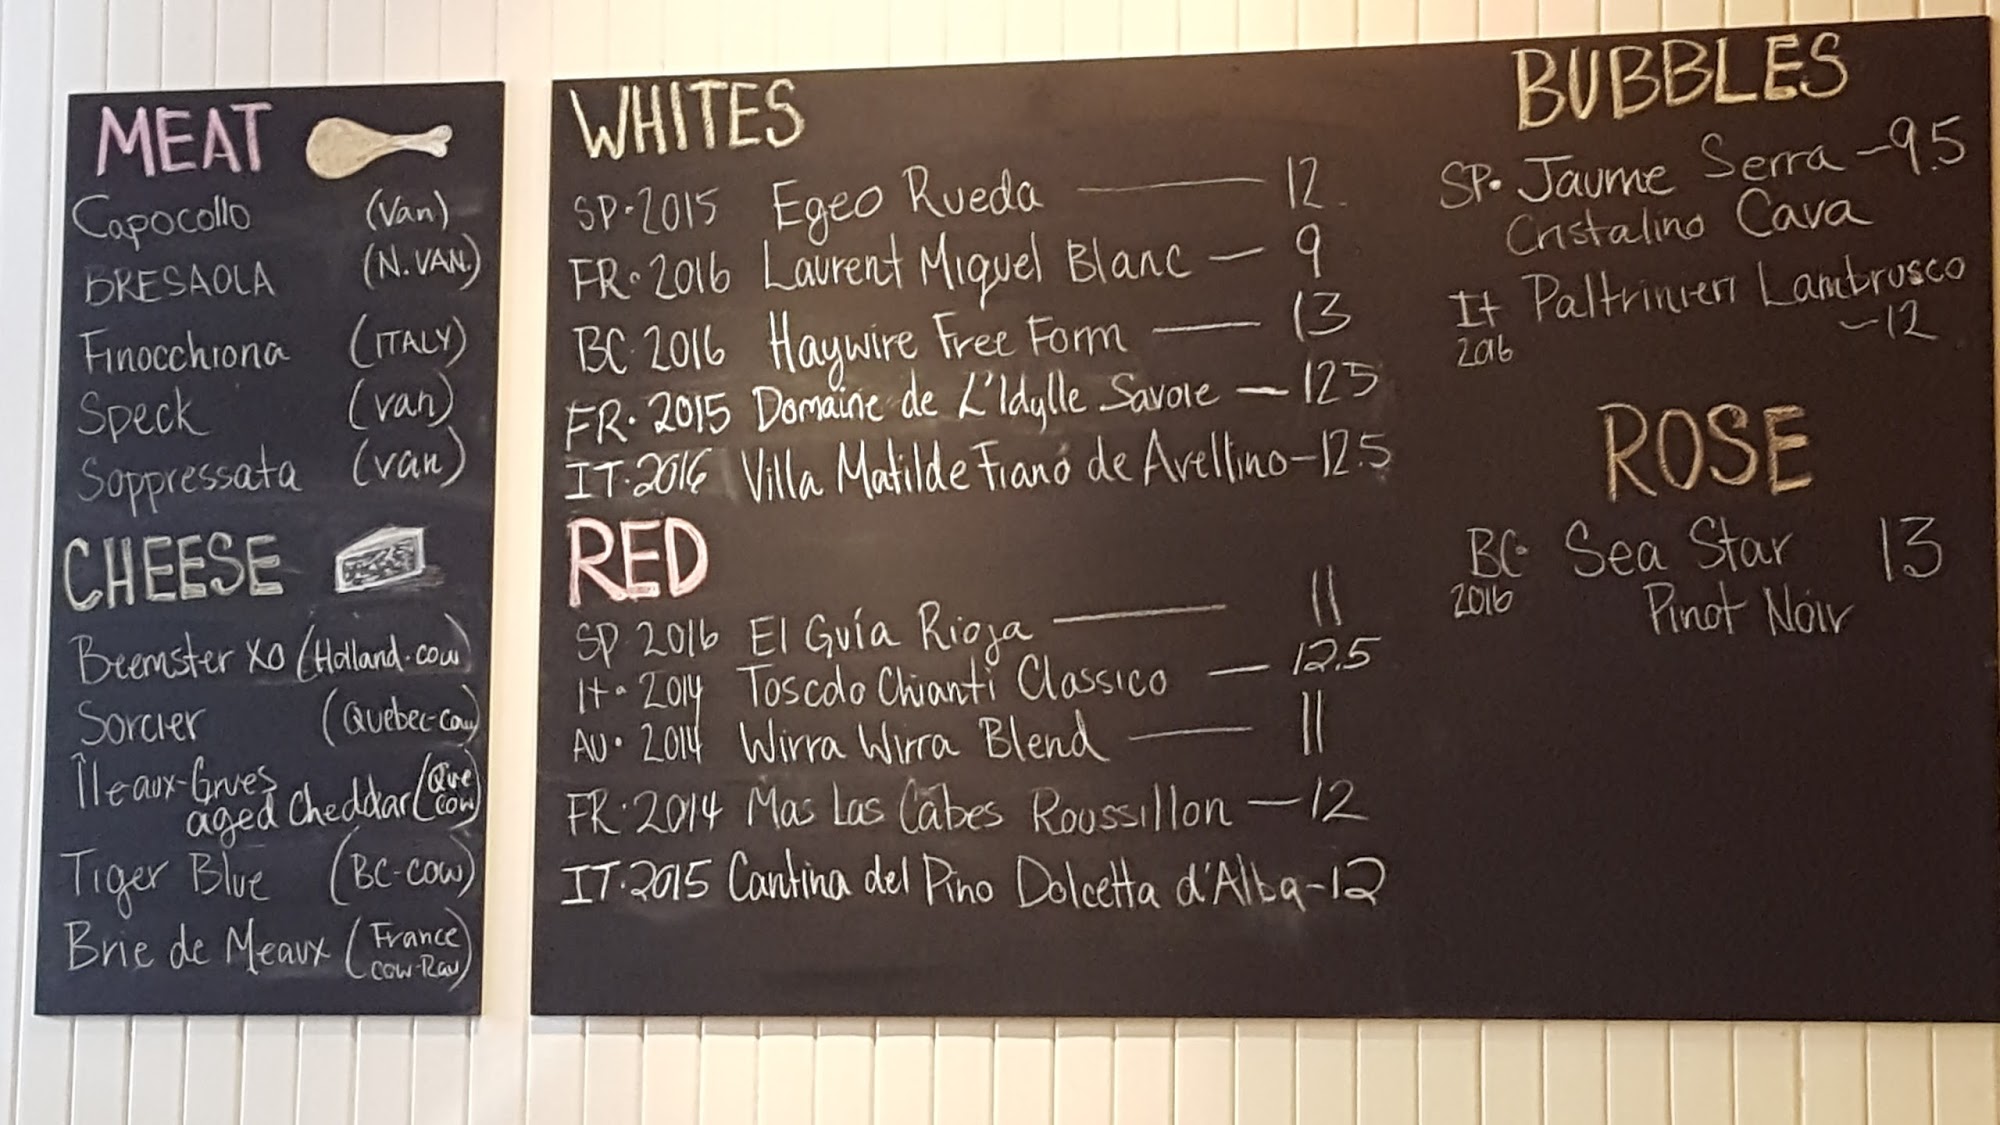 MEAT
Capocollo (Van)
BRESAOLA (N. VAN.)
Finocchiona (ITALY)
Speck (van)
Soppressata (van)
CHEESE
Beemster XO (Holland-cow)
Sorcier (Quebec-cow)
Île aux-Grues (Que
aged Cheddar cow)
Tiger Blue (BC-cow)
Brie de Meaux (France
cow-Raw)
WHITES
SP. 2015 Egeo Rueda — 12
FR. 2016 Laurent Miquel Blanc — 9
BC. 2016 Haywire Free Form — 13
FR. 2015 Domaine de L'Idylle Savoie — 125
IT. 2016 Villa Matilde Fiano de Avellino - 12.5
RED
SP. 2016 El Guía Rioja — 11
It. 2014 Toscolo Chianti Classico — 12.5
AU. 2014 Wirra Wirra Blend — 11
FR. 2014 Mas Las Cabes Roussillon — 12
IT. 2015 Cantina del Pino Dolcetta d'Alba - 12
BUBBLES
SP. Jaume Serra - 9.5
Cristalino Cava
It Paltrinieri Lambrusco
2016 - 12
ROSE
BC. Sea Star 13
2016 Pinot Noir